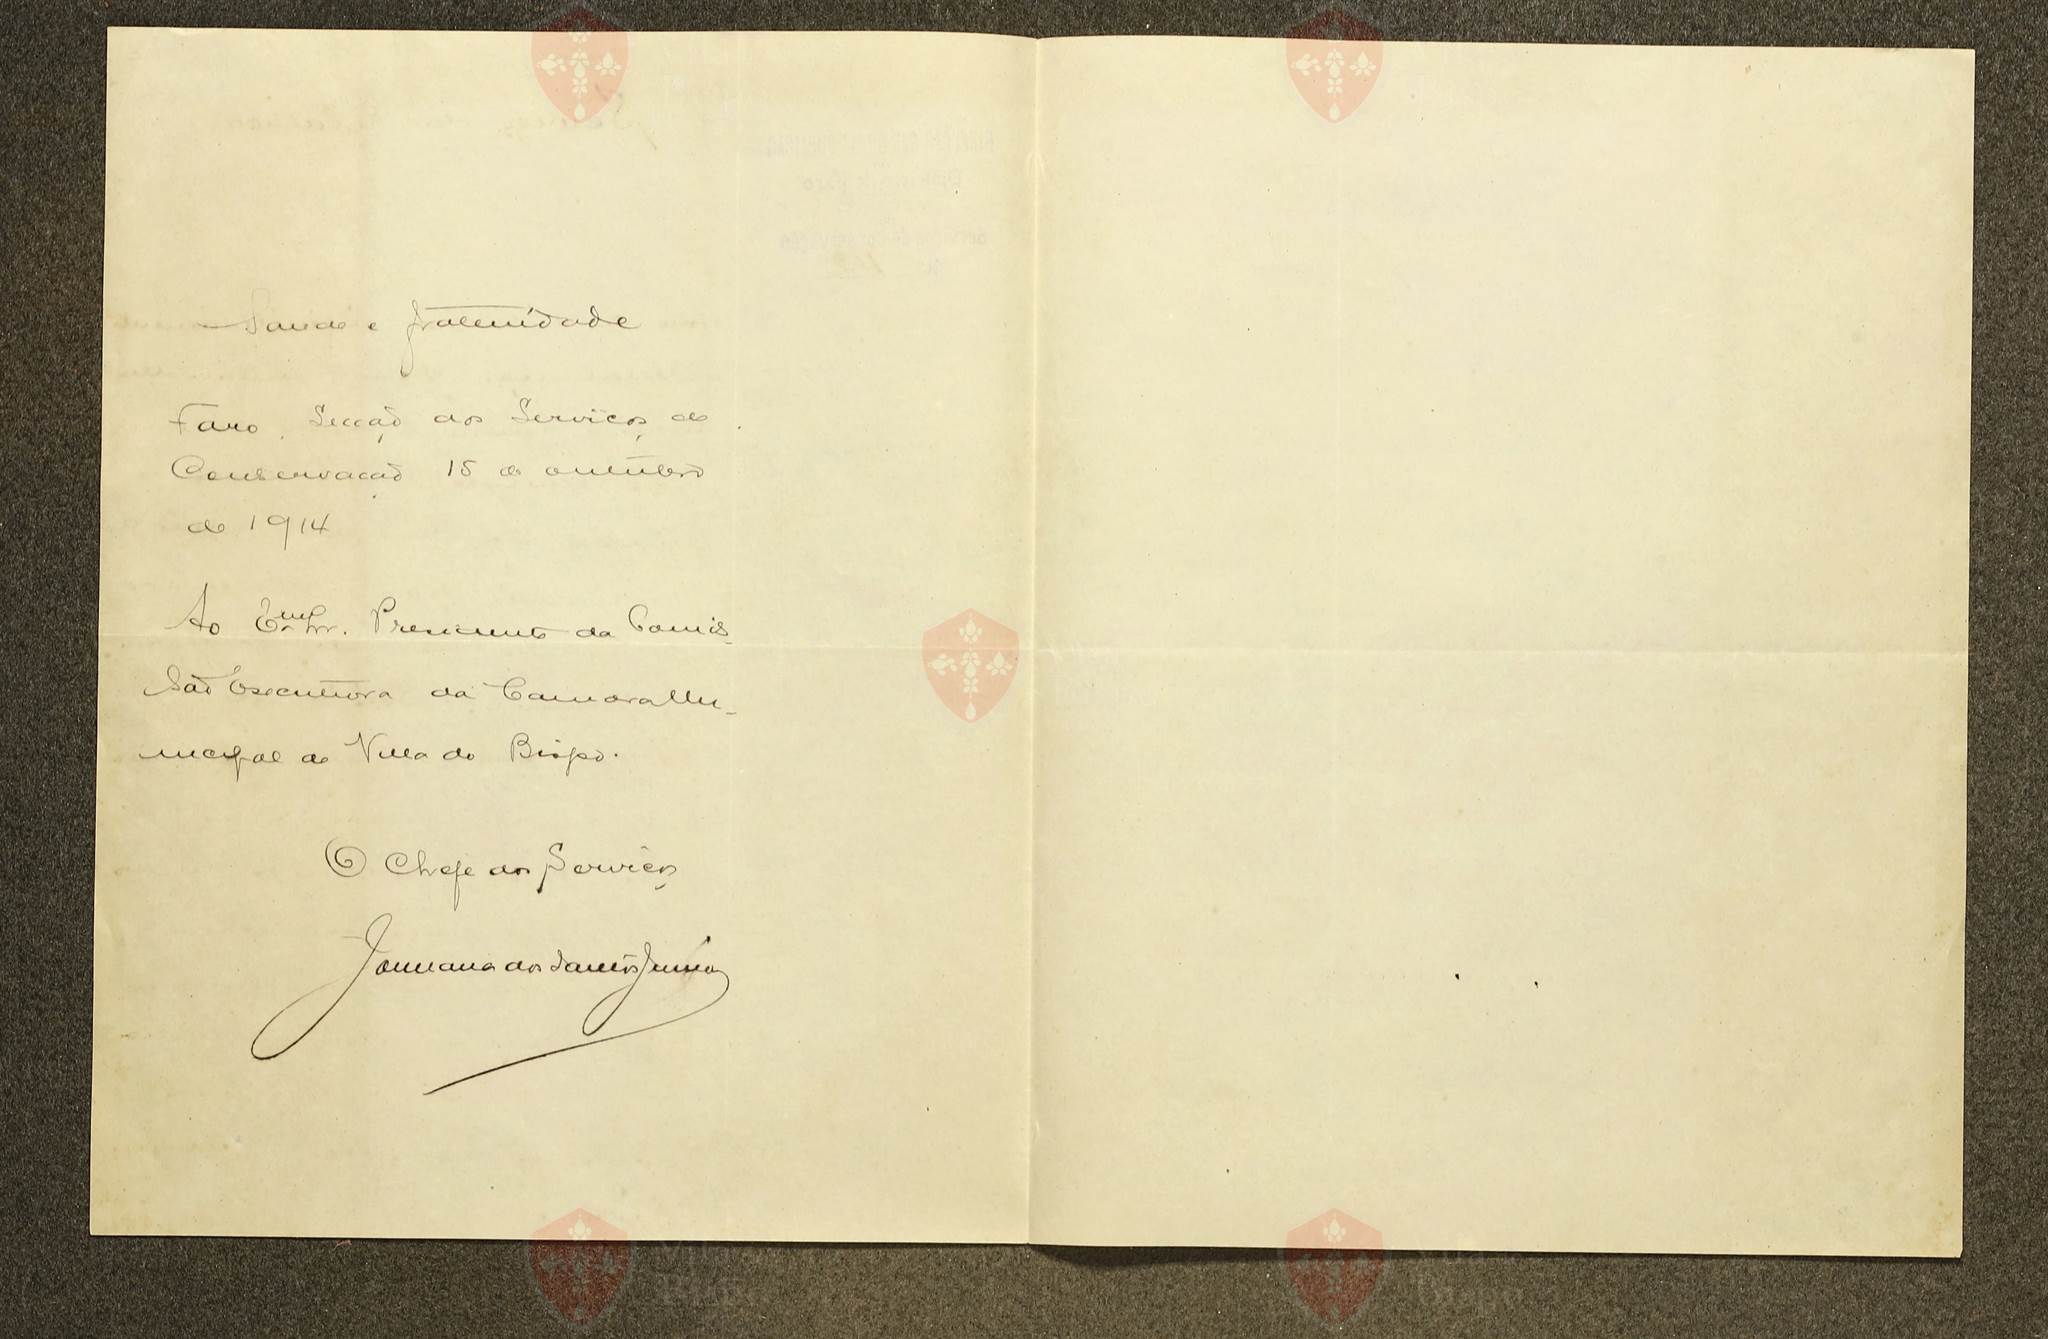 Saude e fraternidade
Faro, Secção dos Serviços de
Conservação 15 de outubro
de 1914
Ao Exmo Sr. Presidente da Comis-
são Executiva da Camara Mu-
nicipal de Villa do Bispo.
O Chefe dos Serviços
dos Santos Junior